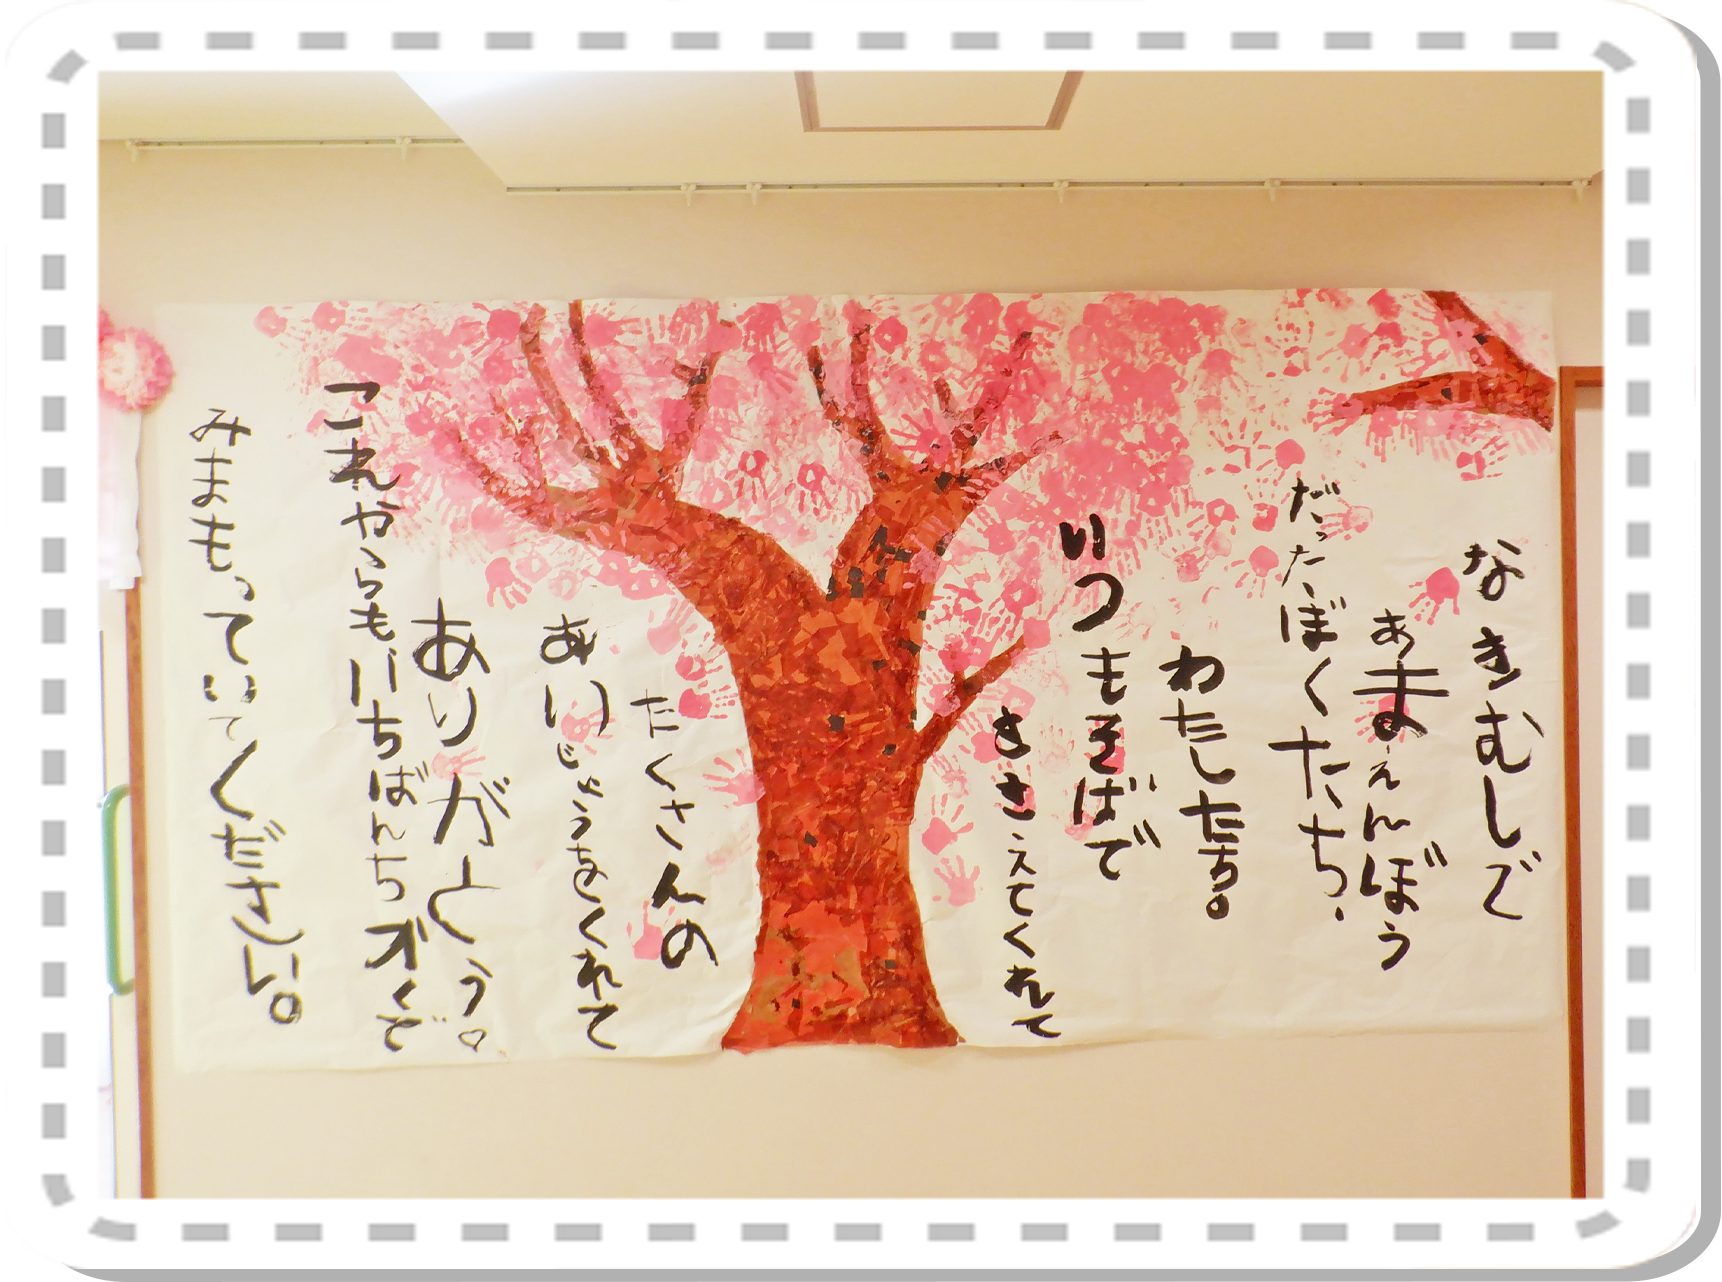 なきむしで
あまえんぼう
だったぼくたち、
わたしたち。
いつもそばで
ささえてくれて
たくさんの
あいじょうをくれて
ありがとう。
これからもいちばんちかくで
みまもっていてください。